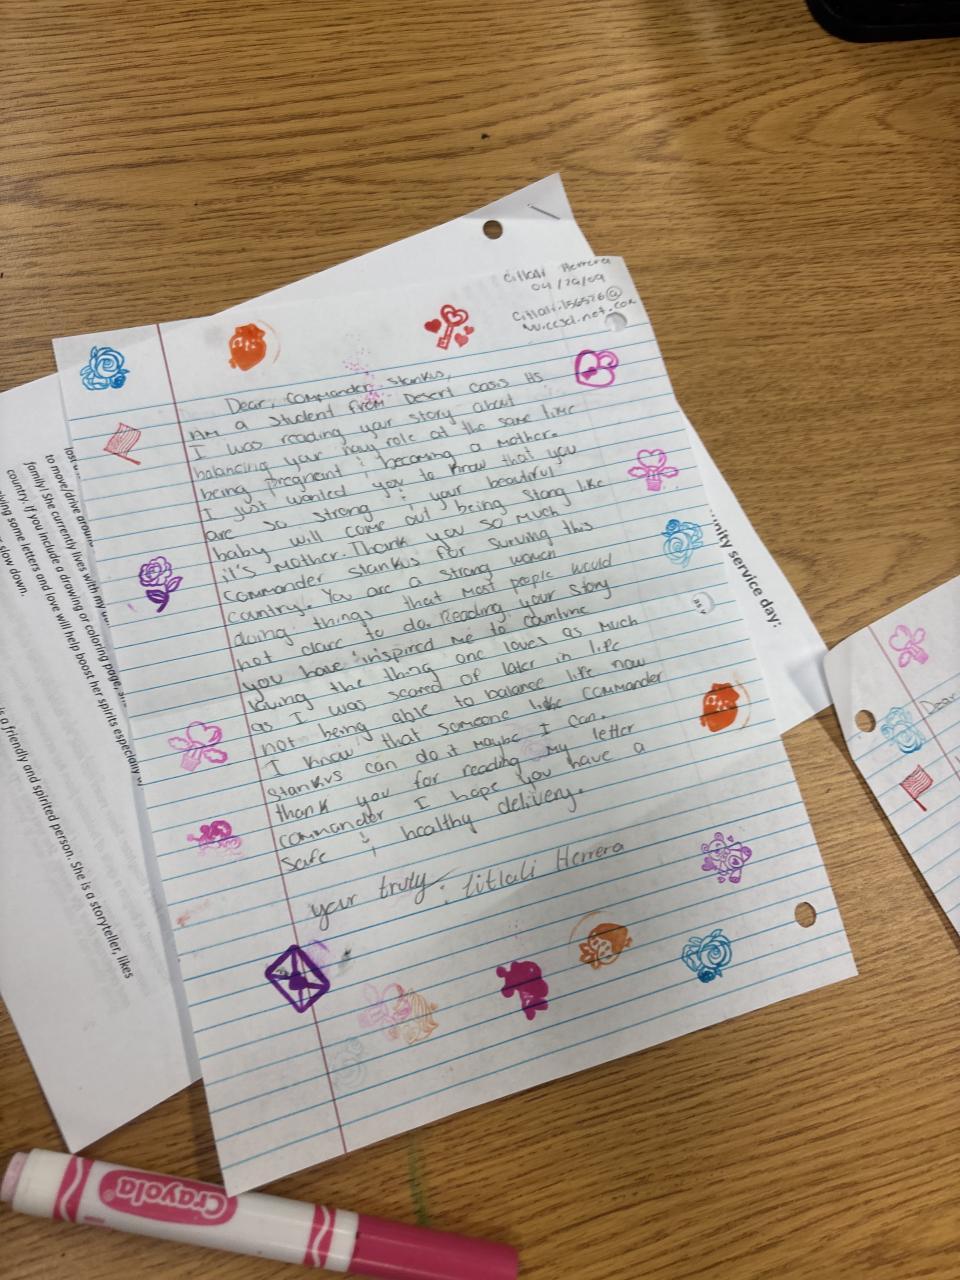 Citlali Herrera
04/26/09
Citlali.156526@
nv.ccsd.net.com
Dear, Commander, Stankus,
Am a student from Desert Oasis HS
I was reading your story about
balancing your navy role at the same time
being pregnant & becoming a Mother.
I just wanted you to know that you
are so strong & your beautiful
baby will come out being stong like
it's Mother. Thank you so much
Commander Stankus for surving this
country. You are a strong women
doing things that most people would
not dare to do. Reading your story
you have inspired me to countine
doing the thing one loves as much
as I was scared of later in life
not being able to balance life now
I know that someone like Commander
Stankus can do it maybe I can.
thank you for reading my letter
commander I hope you have a
safe & healthy delivery.
your truly: Citlali Herrera
to move/drive around
family! She currently lives with my
country. If you include a drawing or coloring page,
giving some letters and love will help boost her spirits especially
slow down.
is a friendly and spirited person. She is a storyteller, likes
unity service day:
Dear
Crayola